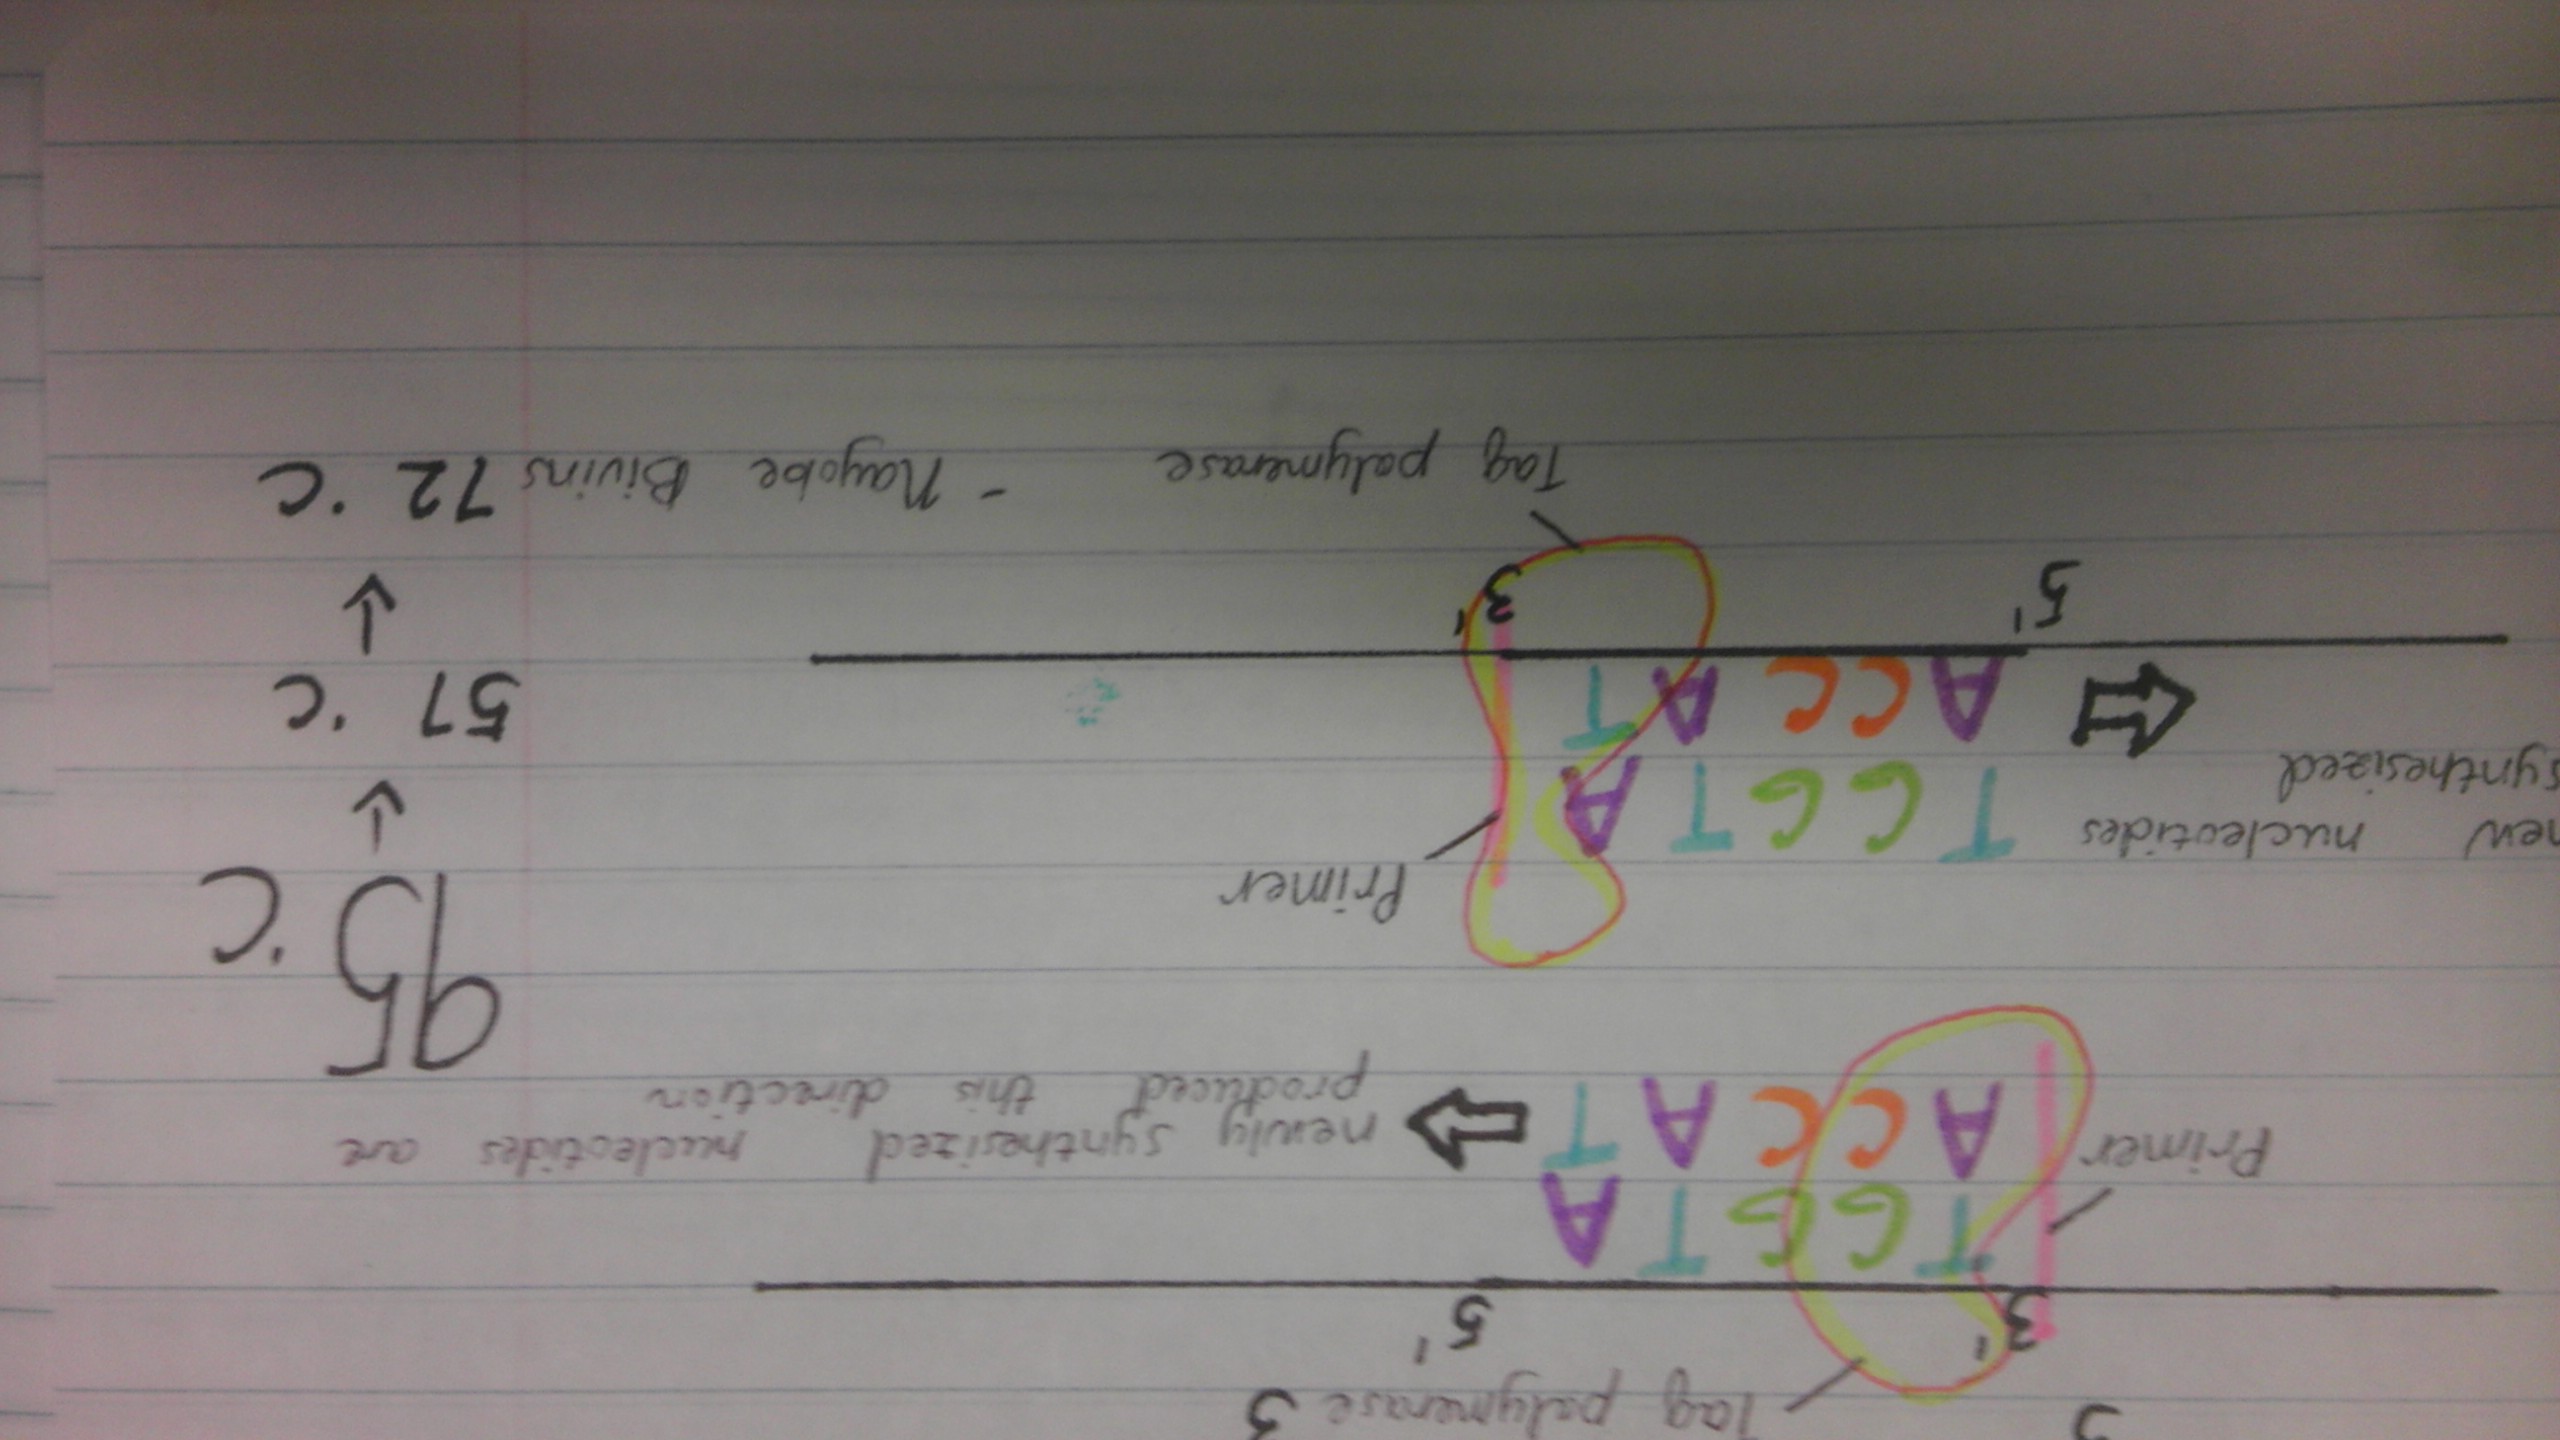 Taq polymerase 3
3' 5'
T G G T A
Primer
A C C A T
newly synthesized nucleotides are
produced this direction
95 °C
Primer
new nucleotides
T G G T A
synthesized
A C C A T
57 °C
5' 3'
Taq polymerase - Nayobe Bivins 72 °C